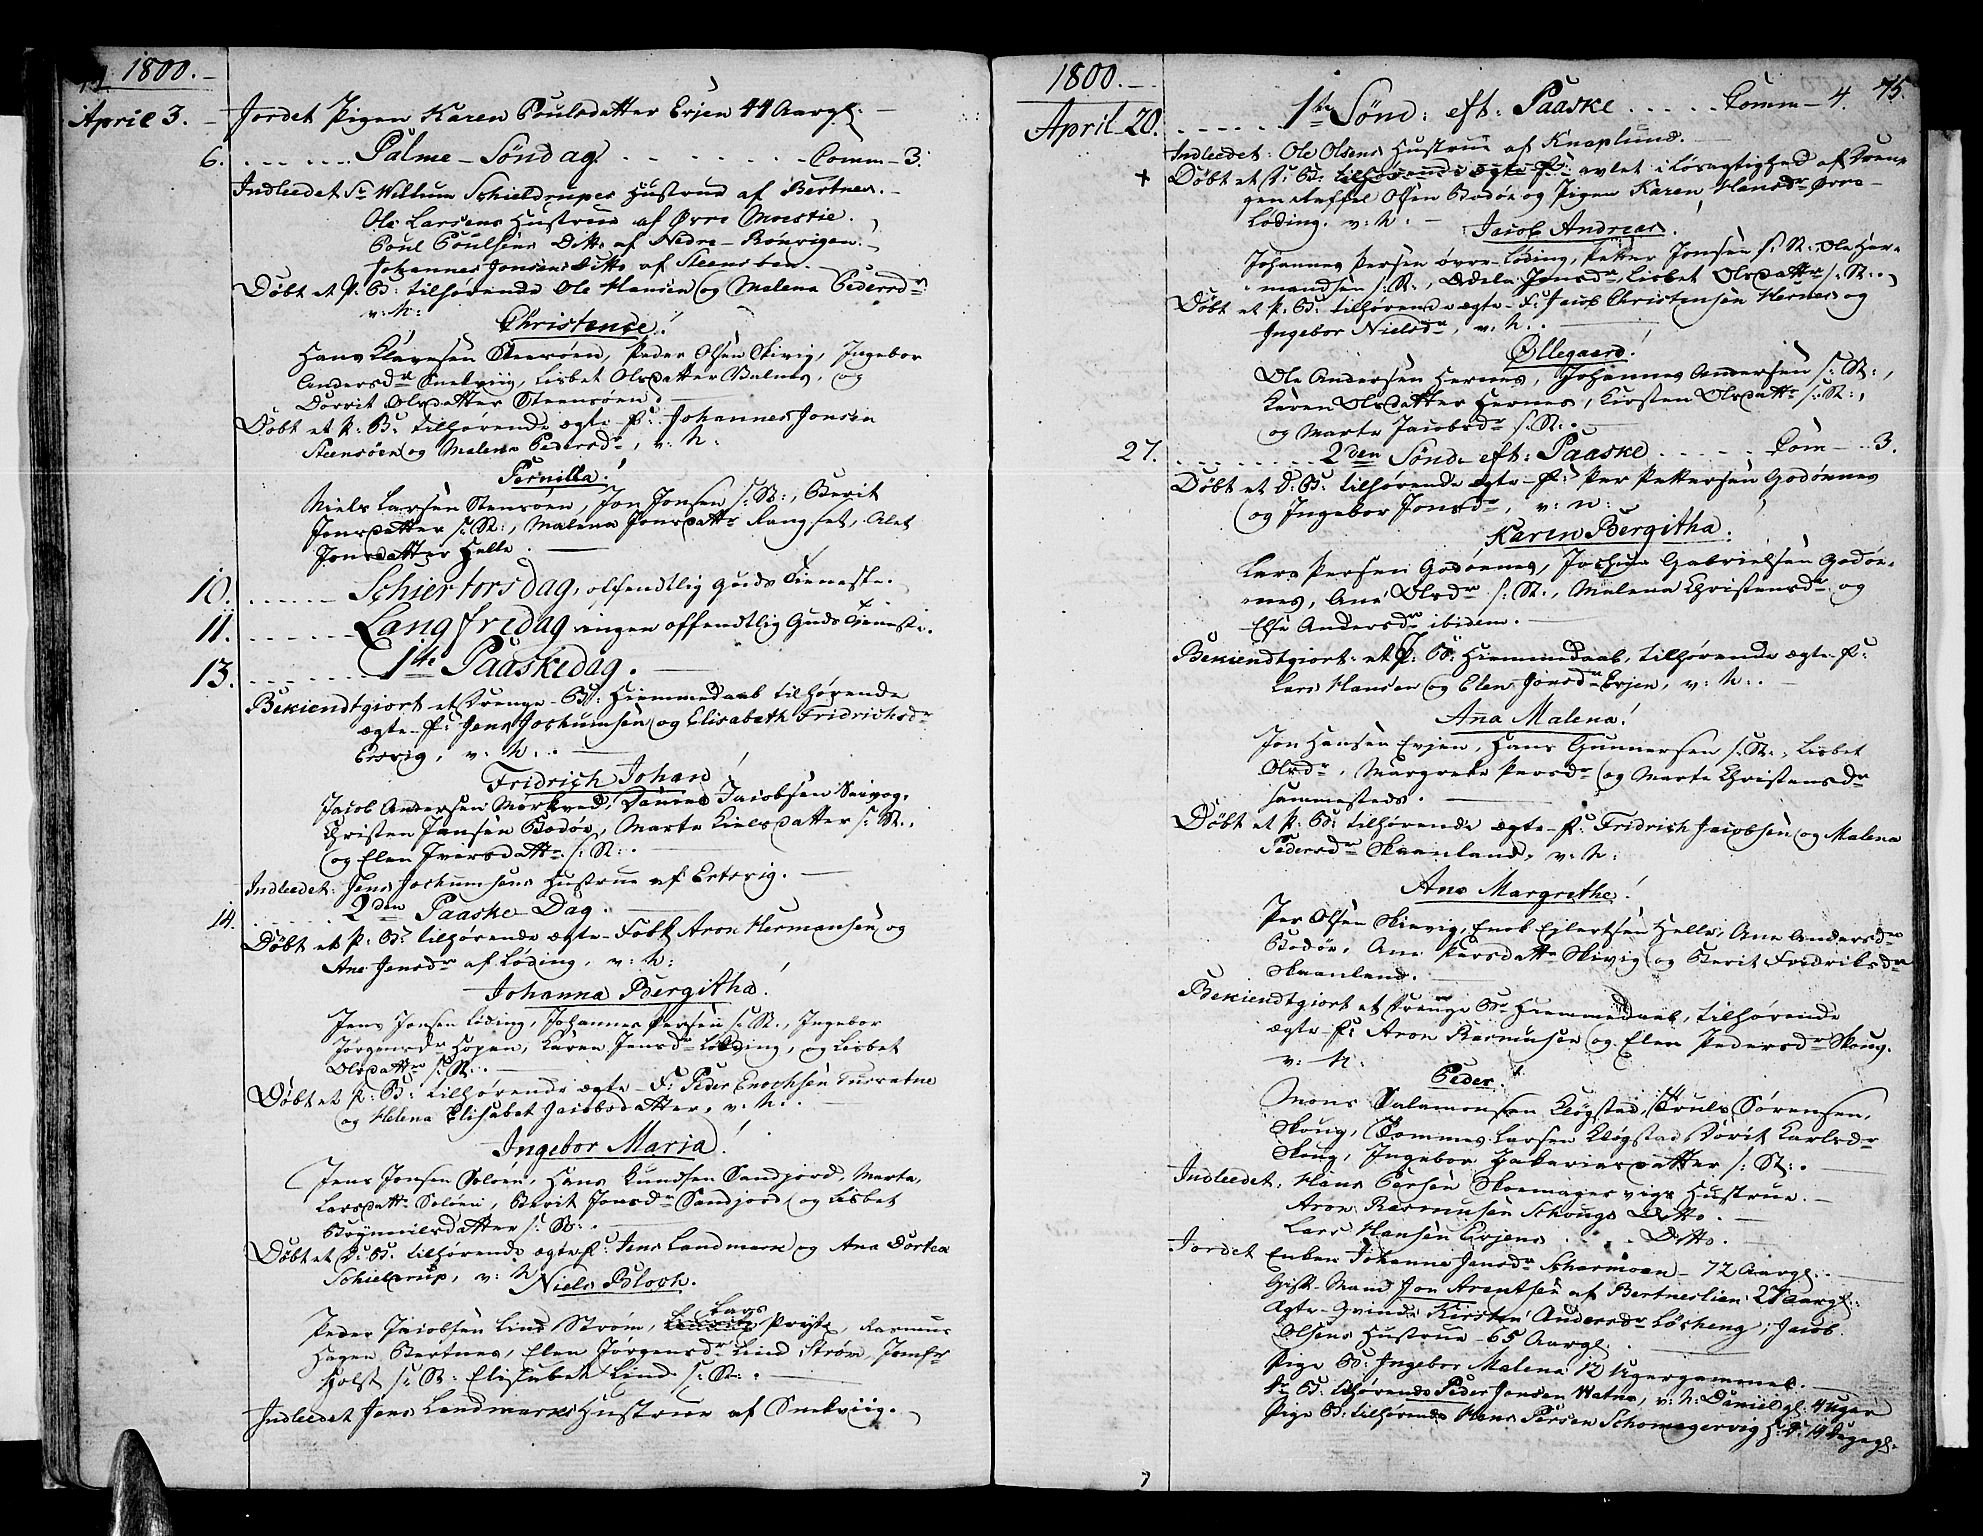 74 1800.
April 3. Jordet Pigen Karen Poulsdatter Evjen 44 Aargl.
6. Palme-Søndag. Comm- 3.
Indleedet Sr Willum Schieldrupes Hustrue af Bertnes.
Ole Larsens Hustrue af Øvre Moestie.
Poul Poulsens Ditto af Nedre-Rönvigen.
Johannes Jonsens Ditto af Steensöen.
Döbt et P: B: tilhørende Ole Hansen og Malena Pedersdr
v: N:
Christence!
Hans Clavesen Steensöen, Peder Olsen Skivig, Ingebor
Andersdr Snekviig, Lisbet Olsdatter Valnes, og
Dorrit Olsdatter Steensöen.
Döbt et P: B: tilhørende ægte-F: Johannes Jonsen
Steensöen og Malena Pedersdr, v: N:
Pernilla!
Niels Larsen Stensöen, Jon Jonsen s: St:, Berit
Jonsdatter s: St:, Malena Jonsdattr Langset, Alet
Jonsdatter Helle.
10. Schiertorsdag, offendtlig Guds Tieneste.
11. Langfredag ingen offendtlig Guds Tieneste.
13. 1te Paaskedag.
Bekiendtgiort et Drenge-B: Hiemmedaab tilhørende
ægte-F: Jens Jochumsen og Elisabeth Fridrichsdr
Ertvig, v: N:
Fridrich Johan!
Jacob Andersen Mörkved, Daniel Jacobsen Seivog,
Christen Jansen Bodöe, Marte Nielsdatter s: St:,
og Elen Iversdattr s: St:
Indleedet: Jens Jochumsens Hustrue af Ertvig.
14. 2den Paaske-Dag.
Döbt et P: B: tilhørende ægte-Folk Aron Hermansen og
Ane Jensdr af Løding, v: N:
Johanna Bergitha!
Jens Jonsen Løding, Johannes Persen s: St:, Ingebor
Jørgensdr Hopen, Karen Jensdr Løding, og Lisbet
Olsdattr s: St:
Döbt et P: B: tilhørende ægte-F: Peder Enochsen
og Helena Elisabet Jacobsdatter, v: N:
Ingebor Maria!
Jens Jonsen Soløen, Hans Knudsen Sandjord, Marta,
Larsdattr Soløen, Berit Jonsdr Sandjord og Lisbet
Brynnilsdatter s: St:
Döbt et D: B: tilhørende ægte F: Jens Landmark og Ana Dortea
Schielderup, v: N: Niels Bloch.
Peder Jacobsen Lind Ström, Lars Prytz, Rasmus
Hagen Bertnes, Elen Jörgensdr Lind Ström, Jomfr
Holst s: St: Elisabet Lind s: St:
Indleedet Jens Landmarks Hustrue af Snekviig.
1800.
75
April 20. 1te Sønd: eft: Paaske Comm- 4.
Indleedet: Ole Olsens Hustrue af Knaplund.
+ Döbt et D: B: tilhørende ægte F: avlet i Løsagtighed af Dren-
gen Olsen Bodöe og Pigen Karen Hansdr Øvre-
Löding. v: N:
Jacob Andreas!
Johannes Persen øvre-Löding, Petter Jonsen s: St: Ole Her-
mandsen s: St:, Adele Jonsdr, Lisbet Olsdattr s: St:
Döbt et P: B: tilhørende ægte-F: Jacob Christensen Hernes og
Ingebor Nielsdr, v: N:
Øllegaard!
Ole Andersen Hernes, Johannes Andersen s: St:,
Karen Olsdatter Hernes, Kirsten Olsdattr s: St:,
og Marte Jacobsdr s: St:
27. 2den Sønd. eft: Paaske Com- 3.
Döbt et P: B: tilhørende ægte-F: Per Pettersen Godönes
og Ingebor Jonsdr, v: N:
Karen Bergitha.
Lars Persen Godönes, Jochum Gabrielsen Godön-
nes, Ane Olsdr s: St:, Malena Christensdr og
Else Andersdr ibidem.
Bekiendtgiort et P: B: Hiemmedaab, tilhørende ægte-F:
Lars Hansen og Elen Jonsdr Evjen, v: N:
Ana Malena!
Jon Hansen Evjen, Hans Gunnersen s: St:, Lisbet
Olsdr, Margrete Persdr og Marte Christensdr
sammesteds.
Döbt et P: B: tilhørende ægte-F: Fridrich Jacobsen og Malena
Pedersdr Skaanland, v: N:
Ane Margrethe!
Per Olsen Skivig, Enok Ejlertsen Helle, Ane Andersdr
Bodöe, Ane Persdattr Skivig og Berit Fridriksdr
Skaanland.
Bekiendtgiort et Drenge Br Hiemmedaab, tilhørende
ægte-F: Aron Rasmusen og Elen Pedersdr Skoug.
v: N:
Peder!
Mons Salamonsen Kløgstad, Truls Sørensen,
Skoug, Tommes Larsen Kløgstad Dorit Karlsdr
Skoug, Ingebor Zakariasdatter s: St:
Indleedet: Hans Persen Skoemagervigs Hustrue.
Aron Rasmusen Schougs Ditto.
Lars Hansen Evjens Ditto.
Jordet Enken Johanna Jensdr Scharmoen- 72 Aargl.
Gift-Mand Jon Arentsen af Bertneslien 27 aargl.
Ægte-Qvinde Kirsten Andersdr Løsheng, Jacob
Olsens Hustrue- 65 Aargl.
Pige B: Ingebor Malena 12 Ugergammel.
Dr B: tilhørende Peder Jonsen Watne, v: N: Daniel gl. 4 uger
Pige B: tilhørende Hans Persen Schomagervig H: D: 14 Dagegl.